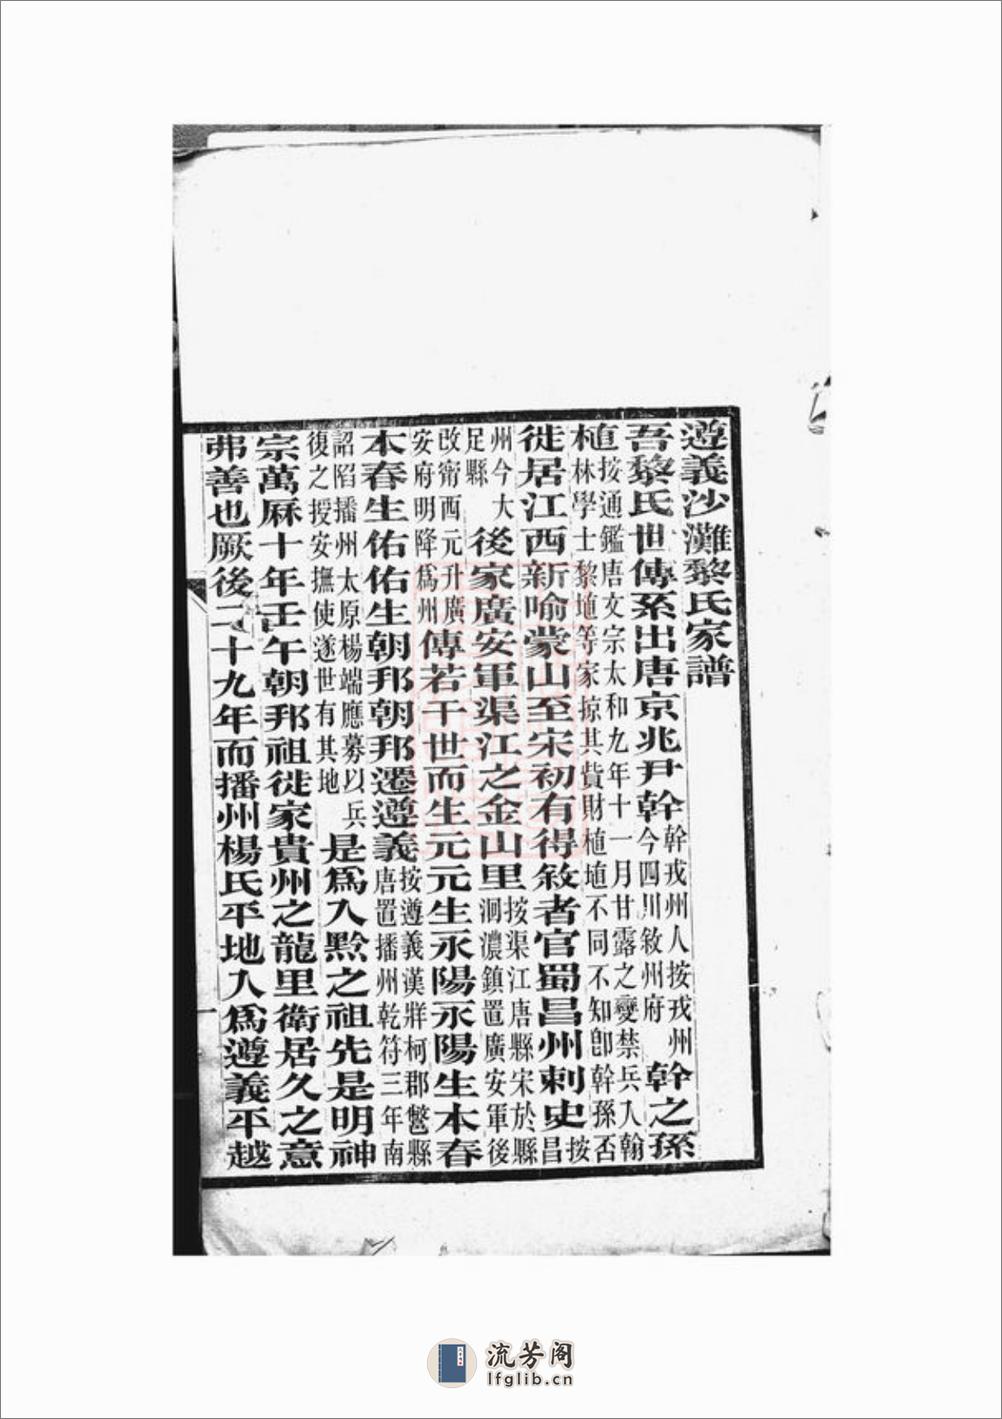 遵義沙灘黎氏家譜
吾黎氏世傳系出唐京兆尹幹幹戎州人按戎州今四川敘州府幹之孫
植按通鑑唐文宗太和九年十一月甘露之變禁兵入翰林學士黎埴等家掠其貲財植埴不同不知卽幹孫否
徙居江西新喻蒙山至宋初有得敘者官蜀昌州刺史按昌
州今大足縣後家廣安軍渠江之金山里按渠江唐縣宋於縣洞濃鎮置廣安軍後
改甯西元升廣安府明降爲州傳若干世而生元元生永陽永陽生本春
本春生佑佑生朝邦朝邦遷遵義按遵義漢牂柯郡鄨縣唐置播州乾符三年南
詔陷播州太原楊端應募以兵復之授安撫使遂世有其地是爲入黔之祖先是明神
宗萬厤十年壬午朝邦祖徙家貴州之龍里衛居久之意
弗善也厥後二十九年而播州楊氏平地入爲遵義平越
一
流芳阁
lfglib.cn